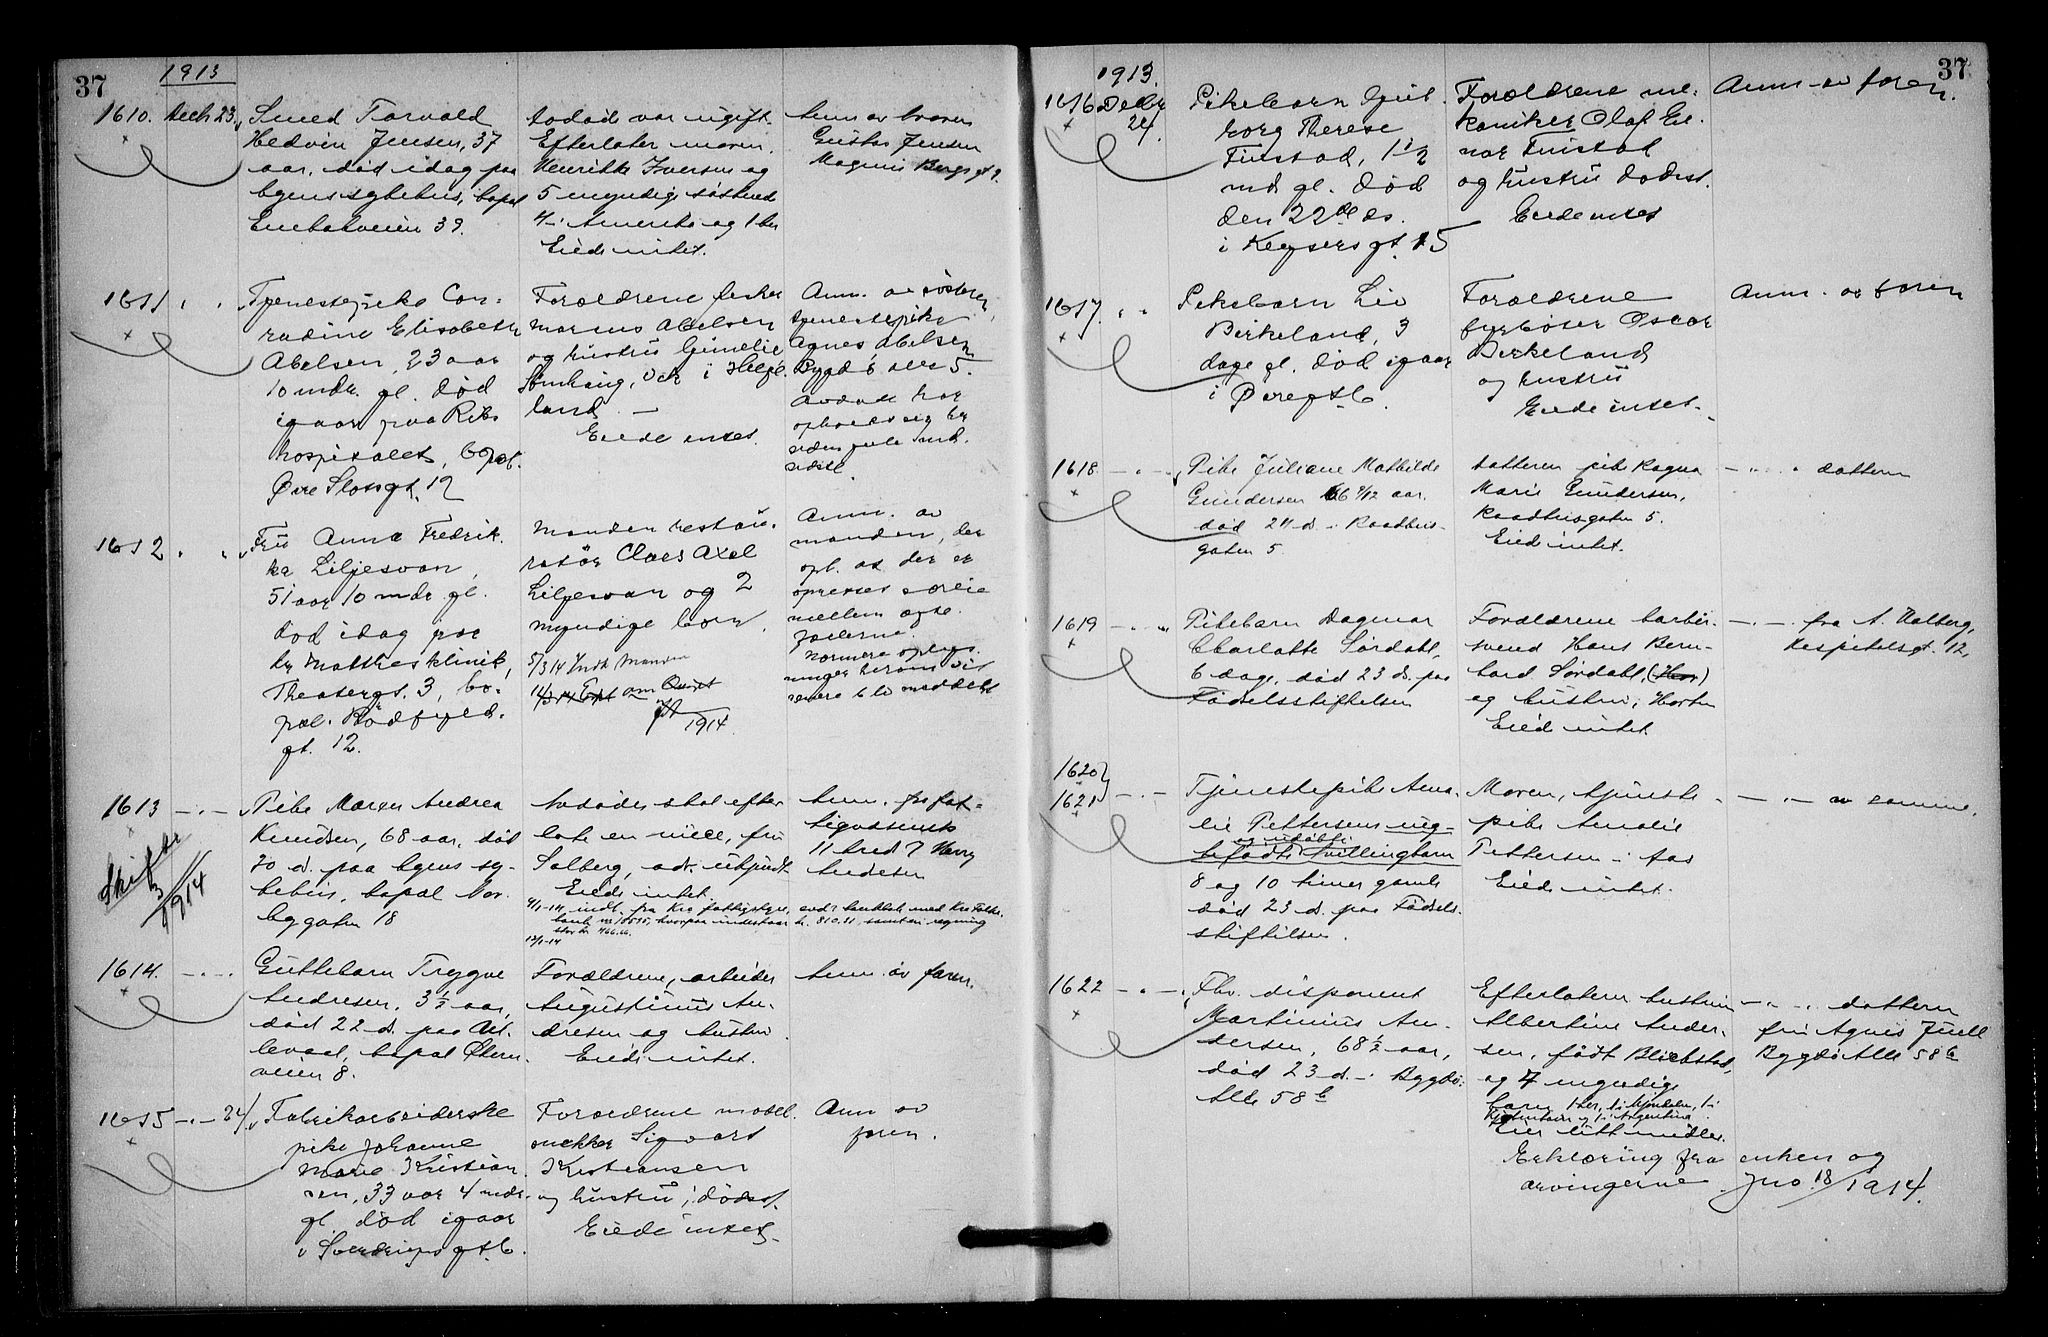 37
1913
1610. Decb 23.
Smed Torvald
Hedvin Jensen, 37
aar, død idag paa
byens sykehus, bopæl
39.
Avdøde var ugift.
Efterlater moren
Henrikke Iversen og
5 myndige søskend
4 i Amerika og 1 her
Eied intet.
Anm av broren
Gustav Jensen
Magnus Bergs gt 9.
1611
Tjenestepike Con-
radine Elisabeth
Abelsen, 23 aar
10 mdr. gl. død
igaar paa Riks
hospitalet, bopæl.
Øvre Slotsgt. 12
Forældrene fisker
Marius Abelsen
og hustru
i Helge-
land. —
Eiede intet.
Anm. av søsteren
tjenestepike
Agnes Abelsen
Bygdø alle 5.
Avdøde har
opholdt sig her
siden jule
sidste
1612
Fru Anna Fredrik-
ke Liljesvan,
51 aar 10 mdr gl.
død idag paa
Dr Malthes klinik,
Theatergt. 3, bo-
pæl. Rådhusgt.
gt. 12.
Manden restau-
ratør Claes Axel
Liljesvan og 2
myndige børn.
5/3 14 Indk manden
1914.
Anm. av
manden, der
opl. at der er
oprettet særeie
mellem ægte-
fællerne.
Nærmere oplys-
ninger herom vil
senere bli meddelt
1613 — . —
Pike Maren Andrea
Knudsen, 68 aar, død
20 d. paa byens sy-
kehus, bopæl Nor-
bygaten 18
Skifte
1914
Avdøde skal efter
late en niece, fru
Solberg, adr. ubekjendt
Eied intet.
Anm. fra fat-
tigvæsenets
11 kred v Harry
Andersen
9/1-14 indt. fra Kra fattigstyre,
12/1-14
1614. — . —
Guttebarn Trygve
Andresen, 3½ aar,
død 22 d. paa Ul-
levaal, bopæl Økern-
veien 8.
Forældrene, arbeider
Augustinus An-
dresen og hustru
Eied intet.
Anm. av faren.
1615 — . — 24/
Fabrikarbeiderske
pike Johanne
Marie Kristian-
sen, 33 aar 4 mdr.
gl. død igaar
i Sverdrups gt 6.
Forældrene model-
snekker Sigvart
Kristiansen
og hustru i dødsst.
Eiede intet.
Anm av
faren.
37
1913.
1616 Decbr
24.
Pikebarn Gud-
borg Therese
Finstad, 1½
md gl. død
den 22de ds.
i Keysersgt. 15
Forældrene me-
kaniker Olaf Ei-
nar Finstad
og hustru dødsst.
Eiede intet
Anm av faren.
1617.
Pikebarn Liv
Birkeland, 3
dage gl. død igaar
i Øvregt 6.
Forældrene
fyrbøter Oscar
Birkeland
og hustru
Eiede intet.
Anm. av faren
1618 — . —
Pike Juliane Mathilde
Gundersen 66 9/12 aar.
død 24 d. i Raadhus-
gaten 5.
Datteren pike Ragna
Marie Gundersen,
Raadhusgaten 5.
Eied intet.
— . — datteren
1619 — . —
Pikebarn Dagmar
Charlotte Sørdahl,
6 dage, død 23 d. paa
Fødselsstiftelsen
Forældrene barber-
svend Hans Bern-
hard Sørdahl, (Hor)
og hustru, i Horten
Eied intet
— . — fra A. Aalberg,
Hospitalsgt. 12,
1620}
1621 — . —
Tjenestepike Ama-
lie Pettersens nyg-
og udøbte
befødte tvillingbarn
8 og 10 timer gamle
død 23 d. paa Fødsels-
stiftelsen.
Moren, tjeneste-
pike Amalie
Pettersen i Aas
Eied intet.
— . — av samme.
1622 — . —
Fhv. disponent
Martinius An-
dersen, 68½ aar,
død 23 d. i Bygdø
Alle 58 b
Efterlater hustru
Albertine Ander-
sen, født Blichstad,
og 7 myndige
børn, 1 her, 1 i Mjøndalen, 1 i
Kjøbenhavn og 1 i Argentina
Eier litt midler.
Erklæring fra enken og
arvingerne Jno. 18/1914.
— . — datteren
fru Agnes Juell
Bygdø Alle 58 b